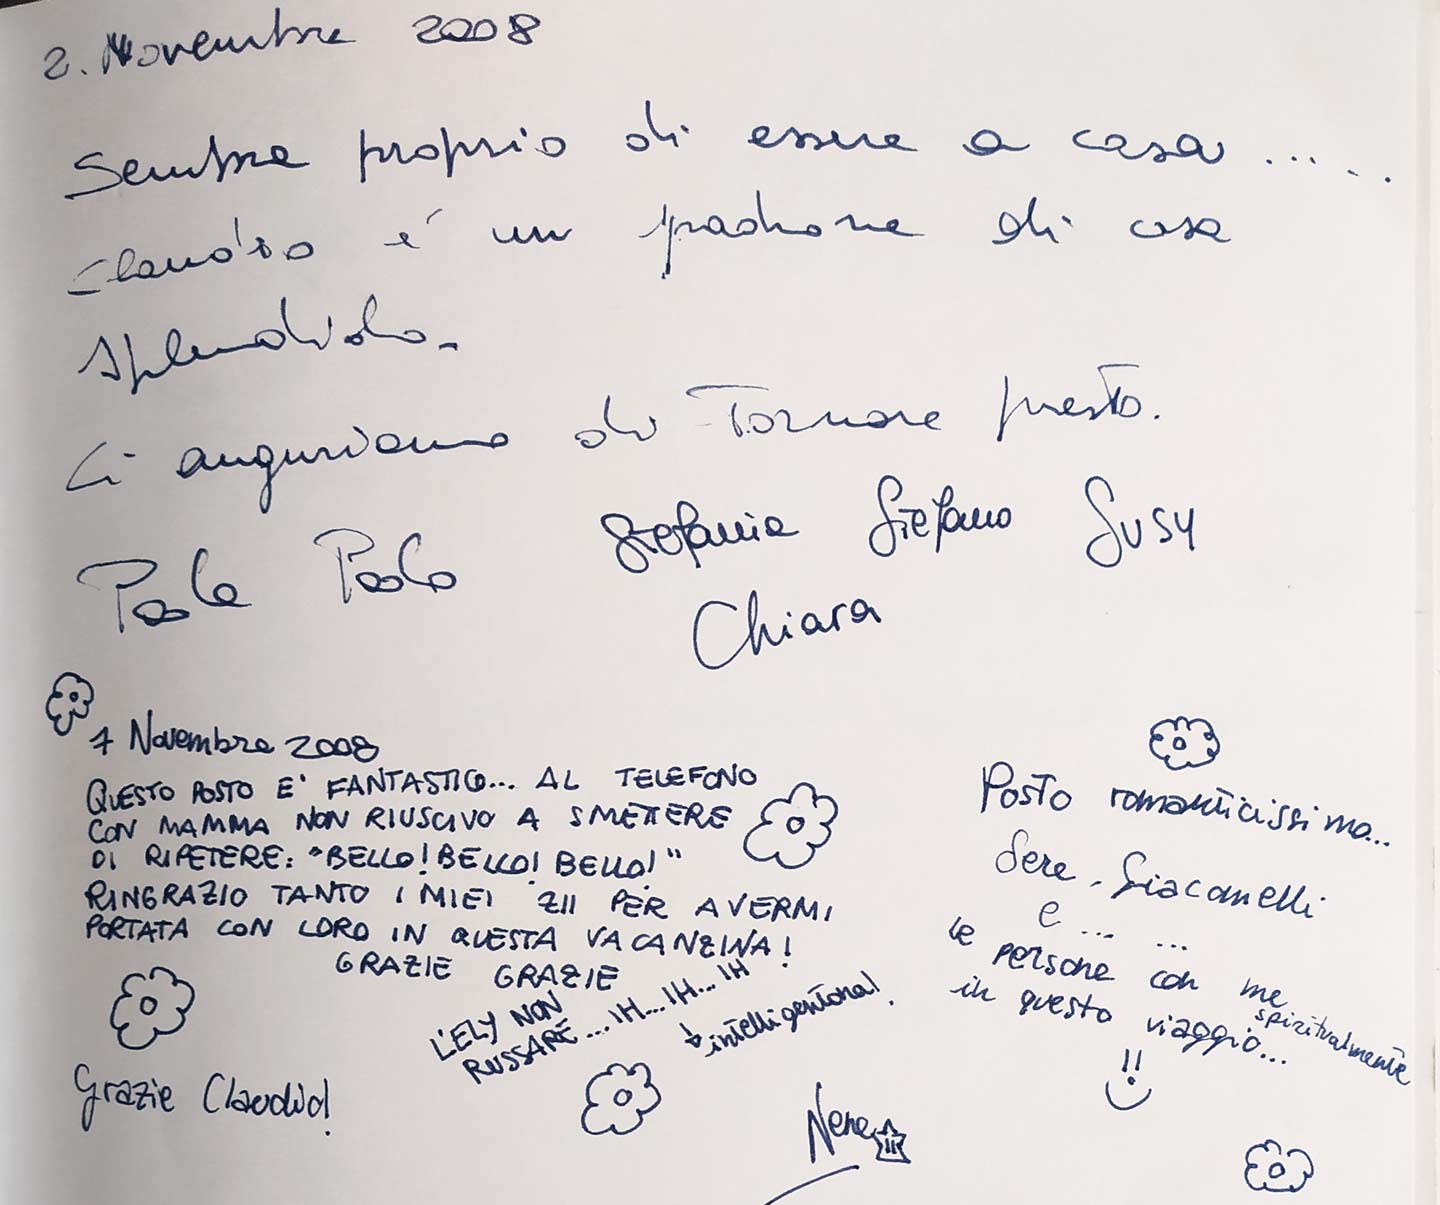 2. Novembre 2008
Sembra proprio di essere a casa .....
Claudio é un padrone di casa
splendido.
Ci auguriamo di Tornare presto.
Paola Paolo Stefania Stefano Susy
Chiara
7 Novembre 2008
QUESTO POSTO E' FANTASTICO... AL TELEFONO
CON MAMMA NON RIUSCIVO A SMETTERE
DI RIPETERE: "BELLO! BELLO! BELLO!"
RINGRAZIO TANTO I MIEI ZII PER AVERMI
PORTATA CON LORO IN QUESTA VACANZINA!
GRAZIE GRAZIE
L'ELY NON
RUSSARE ... IH... IH... IH
intelligentona!
Grazie Claudio!
Nene
Posto romanticissimo...
Sere, Giacomelli
e ... ...
le persone con me spiritualmente
in questo viaggio...
!!